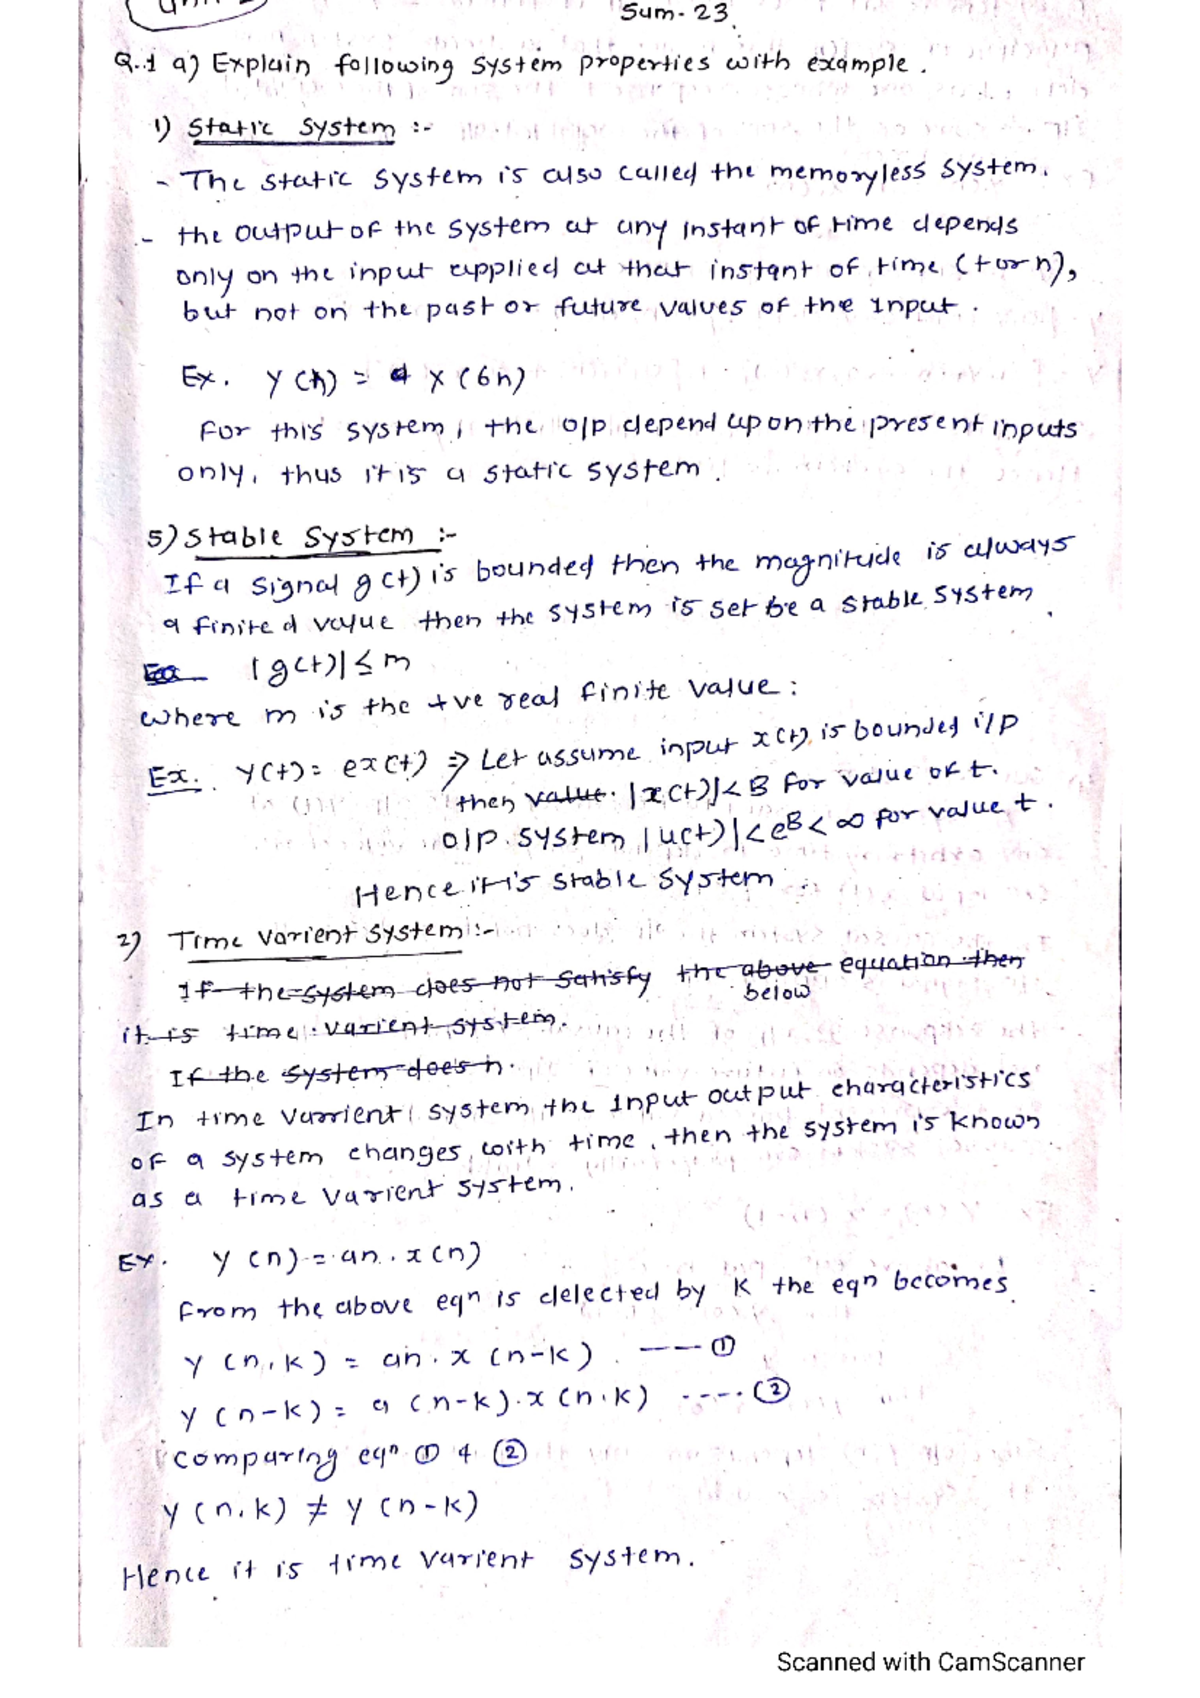 Sum-23
Q.1 a) Explain following system properties with example.
1) Static System :-
- The static system is also called the memoryless system.
- the output of the system at any instant of time depends
only on the input applied at that instant of time (t or n),
but not on the past or future values of the input.
Ex. y(n) = x(6n)
For this system, the o/p depend upon the present inputs
only, thus it is a static system.
5) Stable System :-
If a signal g(t) is bounded then the magnitude is always
a finite d value then the system is set be a stable system.
|g(t)| ≤ m
where m is the +ve real finite value :
Ex. y(t) = ex(t) ⇒ Let assume input x(t) is bounded i/p
then value. |x(t)| < B for value of t.
o/p system |u(t)| < eB < ∞ for value t.
Hence it is stable system
2) Time varient system :-
If the system does not satisfy the above equation then
below
it is time varient system.
If the system does n.
In time varrient system the input output characteristics
of a system changes with time, then the system is known
as a time varient system.
Ex. y(n) = an . x(n)
From the above eqn is delected by K the eqn becomes
y(n,k) = an . x(n-k) --- ①
y(n-k) = a(n-k) . x(n.k) ---- ②
comparing eqn ① & ②
y(n.k) ≠ y(n-k)
Hence it is time varient system.
Scanned with CamScanner